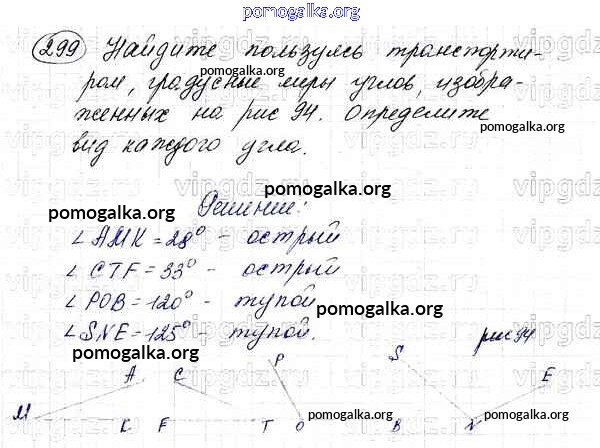 pomogalka.org
299 Найдите пользуясь транспорти-
ром, градусные меры углов, изобра-
женных на рис 94. Определите
pomogalka.org
pomogalka.org
вид каждого угла.
pomogalka.org
pomogalka.org
Решение:
∠AMK = 28° - острый
∠CTF = 33° - острый
pomogalka.org
∠POB = 120° - тупой
pomogalka.org
∠SNE = 125° - тупой.
рис 94
pomogalka.org
P S
A C E
M K F T O B N
pomogalka.org
pomogalka.org
vipgdz